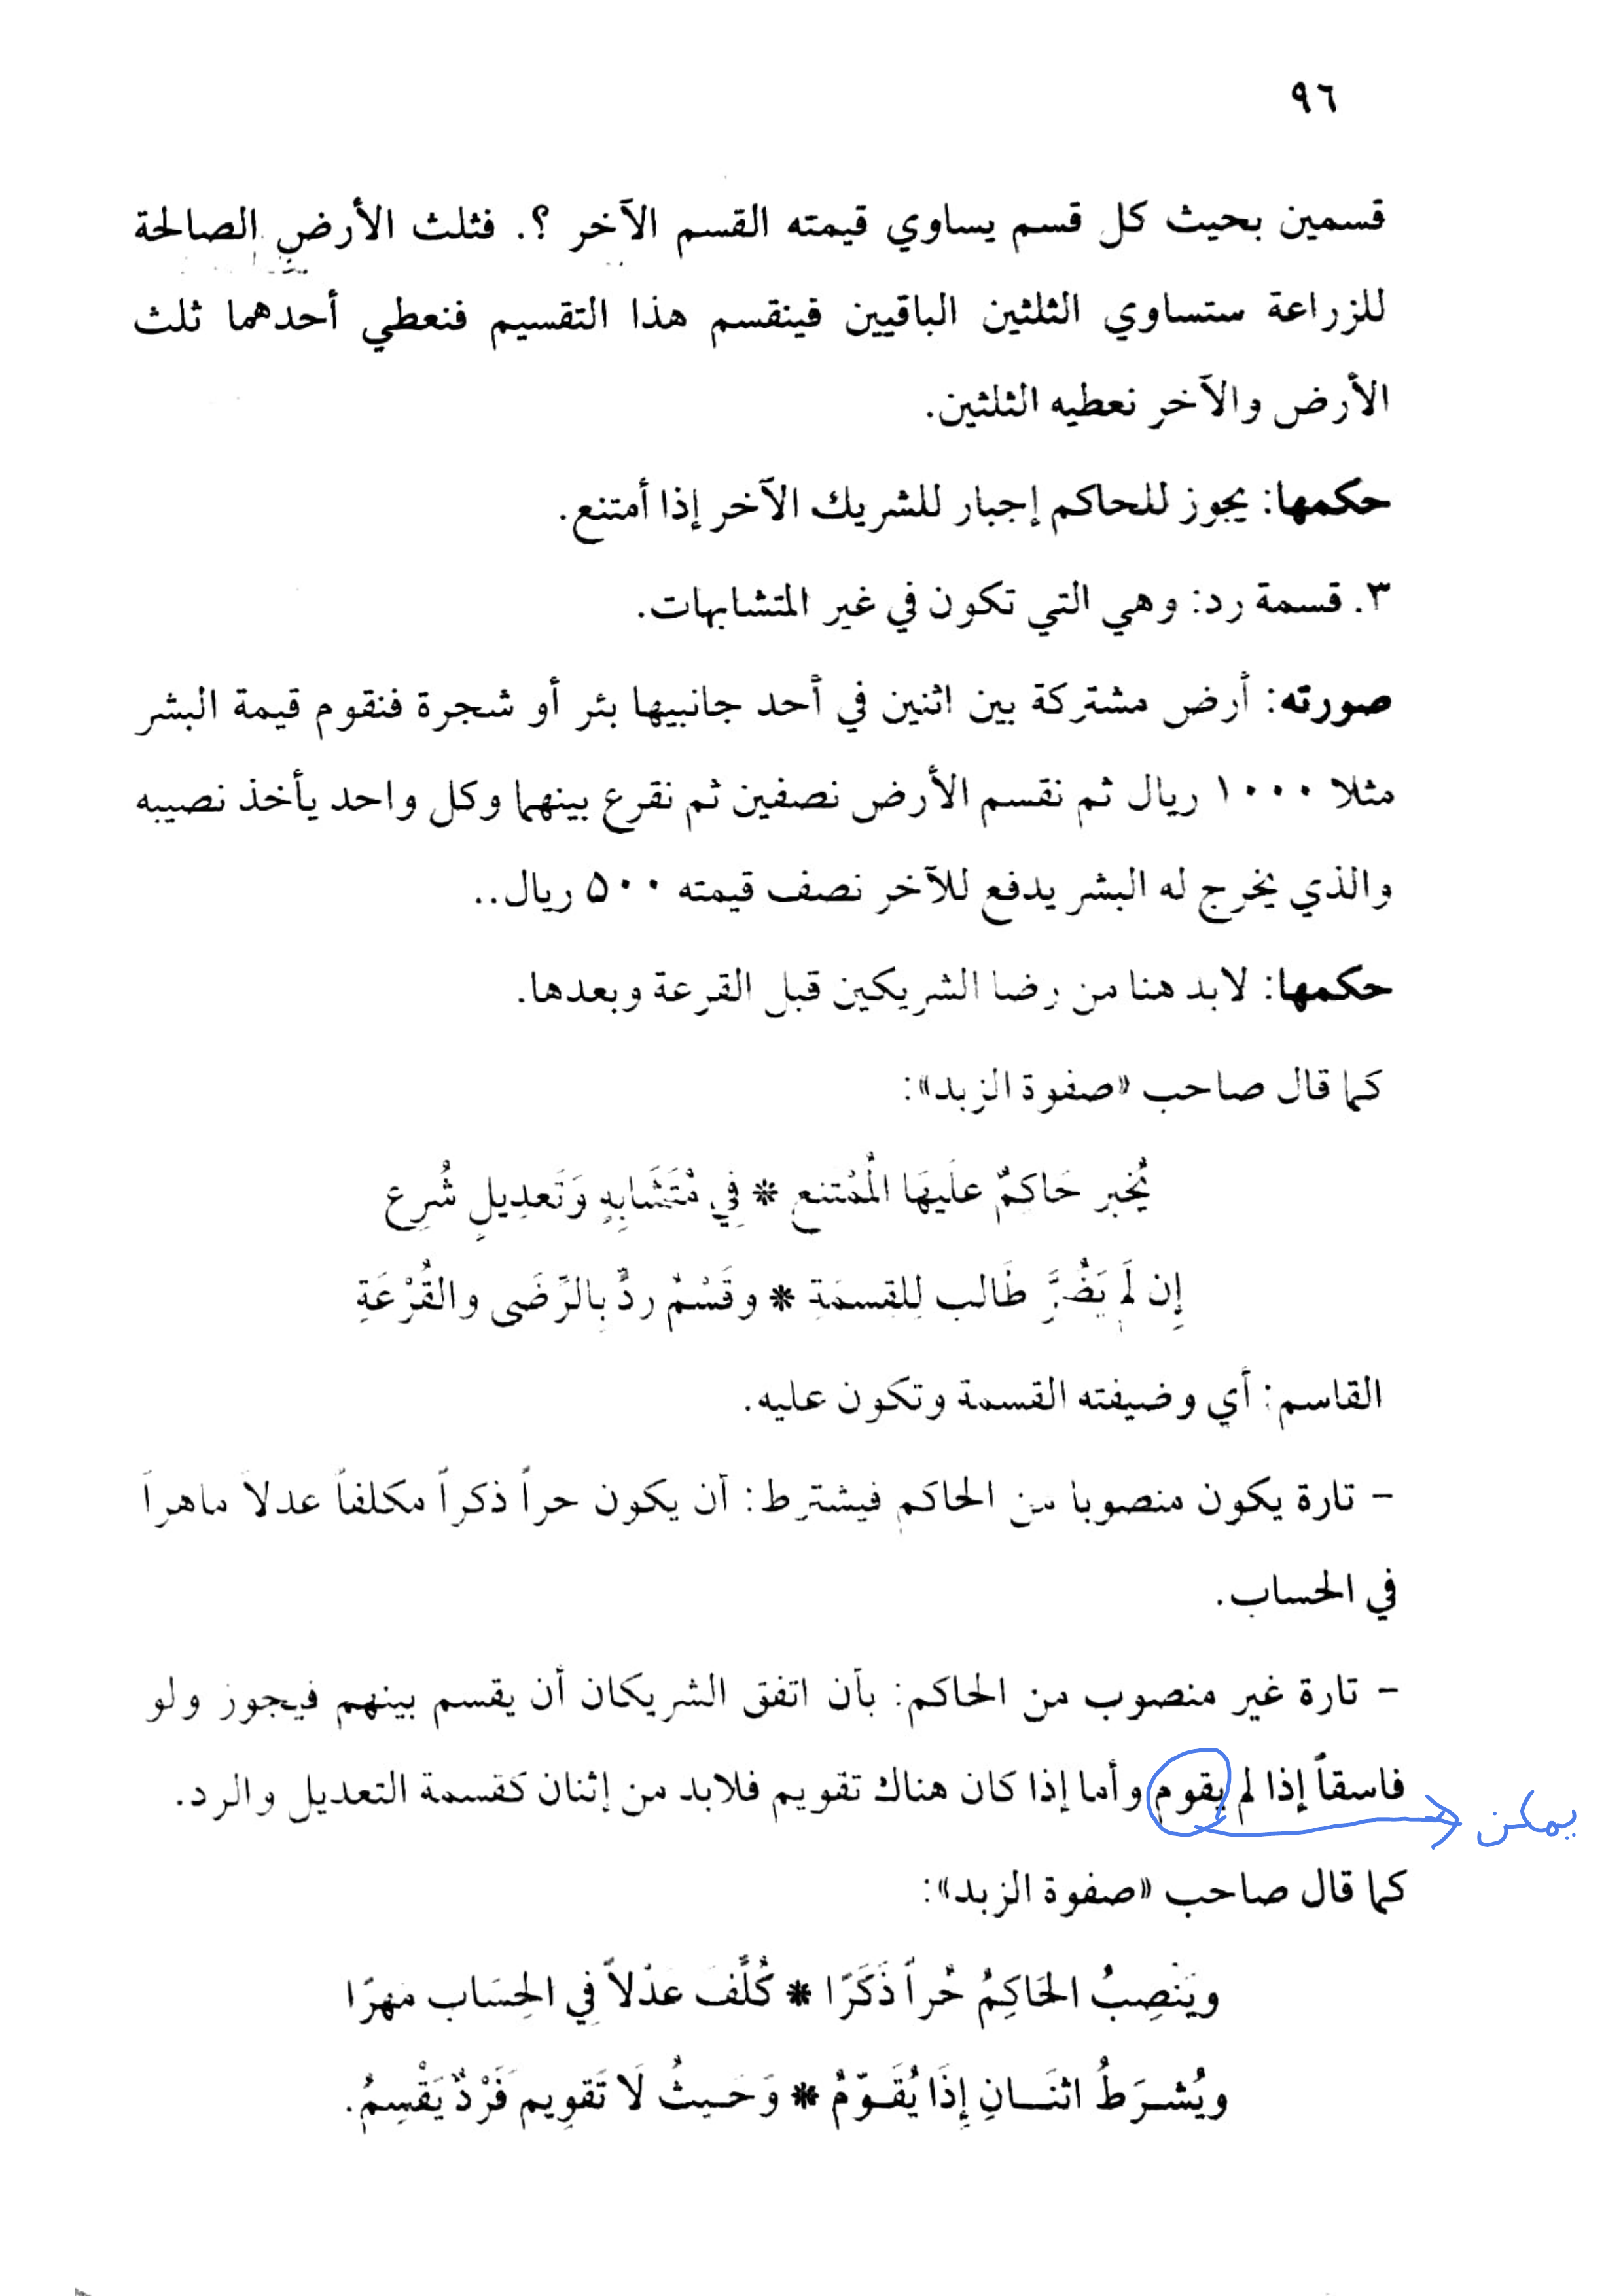 ٩٦
قسمين بحيث كل قسم يساوي قيمته القسم الآخر ؟. فثلث الأرض الصالحة
للزراعة ستساوي الثلثين الباقيين فينقسم هذا التقسيم فنعطي أحدهما ثلث
الأرض والآخر نعطيه الثلثين.
حكمها: يجوز للحاكم إجبار للشريك الآخر إذا أمتنع.
٣. قسمة رد: وهي التي تكون في غير المتشابهات.
صورته: أرض مشتركة بين اثنين في أحد جانبيها بئر أو شجرة فنقوم قيمة البشر
مثلا ١٠٠٠ ريال ثم نقسم الأرض نصفين ثم نقرع بينهما وكل واحد يأخذ نصيبه
والذي يخرج له البشر يدفع للآخر نصف قيمته ٥٠٠ ريال..
حكمها: لابد هنا من رضا الشريكين قبل القرعة وبعدها.
كما قال صاحب «صفوة الزبد»:
يُجبر حَاكِمٌ علَيهَا الُممْتنع * فِي مُتَشَابِهٍ وَتَعدِيلٍ شُرِع
إِن لَم يَضُرَّ طَالب لِلقِسمَةِ * وقَسْمُ ردٌّ بِالرِّضَى والقُرْعَةِ
القاسم: أي وضيفته القسمة وتكون عليه.
- تارة يكون منصوبا من الحاكم فيشترط: أن يكون حراً ذكراً مكلفاً عدلاً ماهراً
في الحساب.
- تارة غير منصوب من الحاكم: بأن اتفق الشريكان أن يقسم بينهم فيجوز ولو
فاسقاً إذا لم يقوم وأما إذا كان هناك تقويم فلابد من إثنان كقسمة التعديل والرد.
يمكن
كما قال صاحب «صفوة الزبد»:
ويَنْصِبُ الحَاكِمُ حُراً ذَكَرًا * كُلِّفَ عَدْلاً فِي الحِسَاب مَهرًا
ويُشـرَطُ اثنَـــانِ إِذَا يُقَـوّمُ * وَحَـيثُ لَا تَقوِيم فَرْدٌ يَقْسِمُ.